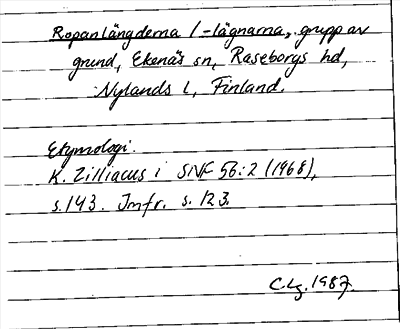 Ropanlängderna / -lägnarna, grupp av
grund, Ekenäs sn, Raseborgs hd,
Nylands l, Finland.
Etymologi.
K. Zilliacus i SNF 56:2 (1968),
s.143. Jmfr. s. 123.
C.Lg. 1987.